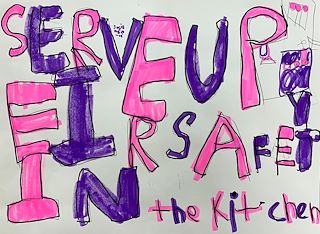 SERVE UP
EIR SAFETY
IN the Kitchen